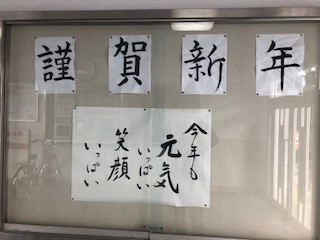 謹賀新年
今年も
元気
いっぱい
笑顔
いっぱい